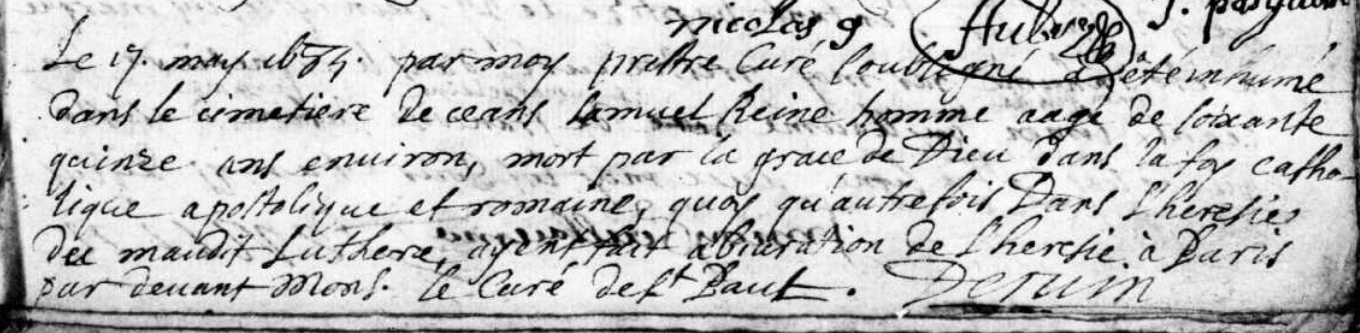 nicolas g Hubert J. pasquier
Le 17. may 1674. par moy prestre Curé soubsigné a été inhumé
dans le cimetiere de ceans Samuel Reine homme aagé de soixante
quinze ans environ, mort par la grace de Dieu dans la foy catho-
lique apostolique et romaine, quoy qu'autrefois Dans l'heresie
du maudit Luthere, ayent fait abiuration de l'heresie à Paris
par devant Mons. le Curé de St Paul.